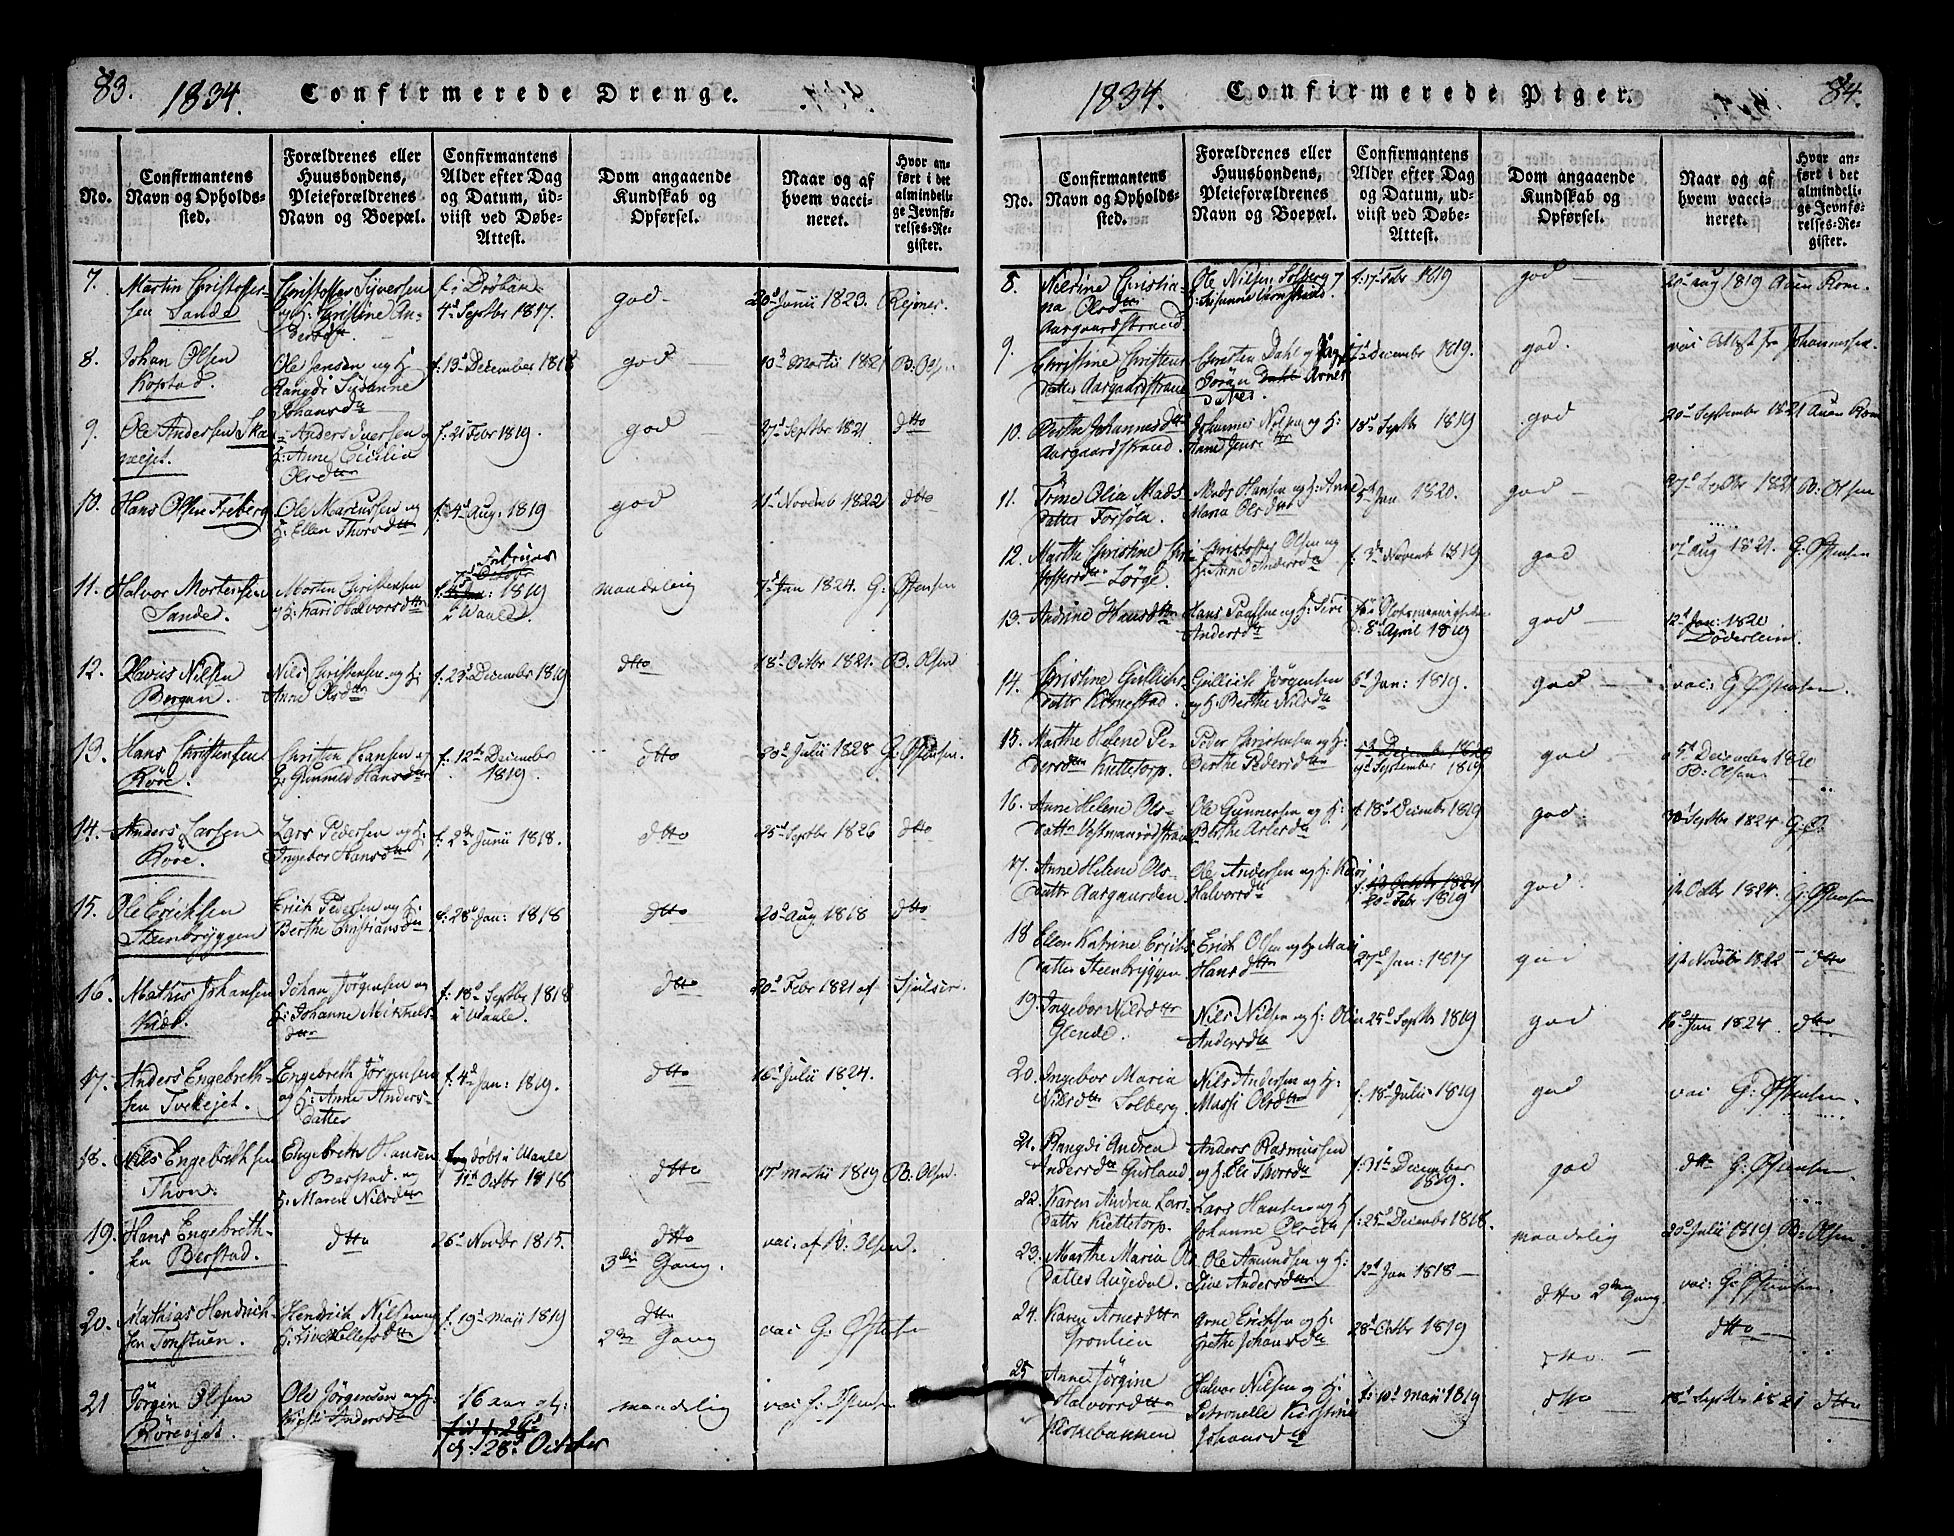 83.
1834.
Confirmerede Drenge.
No.
Confirmantens
Navn og Opholds-
sted.
Forældrenes eller
Huusbondens,
Pleieforældrenes
Navn og Boepæl.
Confirmantens
Alder efter Dag
og Datum, ud-
viist ved Døbe-
Attest.
Dom angaaende
Kundskab og
Opførsel.
Naar og af
hvem vacci-
neret.
Hvor an-
ført i det
almindeli-
ge Jevnfø-
relses-Re-
gister.
7.
Martin Christoffer-
sen Sande
Christoffer Syversen
og H: Christine An-
dersd
f: i Drøbak
4d Septbr 1817.
god
20d Junii 1823.
8.
Johan Olsen
Kopstad.
Ole Jensen og H:
Rangdi Susanne
Johansd
f: 13d December 1818
god
10d Martii 1821
B: Ols
9.
Ole Andersen
Anders Iversen
H: Anne Cicilia
Olsdtr
f: 21 Febr 1819.
god
27d Septbr 1821.
dtto
10.
Hans Olsen Freberg
Ole Mariusen og
H: Ellen Thorsdtr
f: 4d Aug: 1819
god
11d Novemb 1822
dtto
11.
Halvor Mortensen
Sande.
Morten Christensen
og H: Kari Halvorsdtr
1819
i Vaale.
maadelig
7d Jan 1824.
G: Østensen
12.
Olavus Nilsen
Bergan.
Nils Christensen og H:
Anne Olsdtr
f: 23d December 1819
dtto
18d Octbr 1821.
B. Olsen
13.
Hans Christensen
Røre.
Christen Hansen og
H: Gunnild Hansdtr
f: 12te December
1819.
dtto
20d Julii 1828
G: Østensen.
14.
Anders Larsen
Røre.
Lars Pedersen og H:
Ingebor Hansdtr
f: 2den Junii 1818.
dtto
25d Septbr 1826
dtto
15.
Ole Ericksen
Steenbryggen
Erick Pedersen og H:
Berthe Christiansd
f: 28d Jan: 1818
dtto
20d Aug 1818
dtto
16.
Mathis Johansen
Johan Jørgensen og
H: Johanne Mikkels-
dtr
f: 18d Septbr 1818
i Vaale.
dtto
20d Febr 1821 af
17.
Anders Engebreth-
sen
Engebreth Jørgensen
og H: Anne Anders-
datter
f: 4d Jan: 1819.
dtto
16d Julii 1824.
18.
Nils Engebrethsen
Thon.
Engebreth Hansen
Berstad. og
H: Maren Nilsdtr
døbt i Vaale
11te Octbr 1818
dtto
17d Martii 1819
B. Olsen.
19.
Hans Engebreth-
sen Berstad.
dtto
26d Novbr 1815.
dtto
3die Gang.
vac: af B. Olsen.
20.
Mathias Hendrich-
sen
Hendrich Nilsen og
H:
f: 19d Maji 1819
dtto
2den Gang
vac: G: Østensen
21
Jørgen Olsen
Ole Jørgensen og H:
Andersd
16 aar
28d October
maadelig
vac: G: Østensen
84.
1834.
Confirmerede Piger.
No.
Confirmantens
Navn og Opholds-
sted.
Forældrenes eller
Huusbondens,
Pleieforældrenes
Navn og Boepæl.
Confirmantens
Alder efter Dag
og Datum, ud-
viist ved Døbe-
Attest.
Dom angaaende
Kundskab og
Opførsel.
Naar og af
hvem vacci-
neret.
Hvor an-
ført i det
almindeli-
ge Jevnfø-
relses-Re-
gister.
8.
Nilsine Christia-
na Olsdtr
Aargaardstrand
Ole Nilsen Solberg
H: Susanne
f: 17d Febr 1819
god
20d Aug 1819
9.
Christine Christens-
datter Aargaardstrand
Christen Dahl
December 1819.
god.
vac: Attest fra Johannesen.
10.
Berthe Johannesd
Aargaardstrand.
Johannes Nilsen og H:
Anne Jensdtr
18d Septbr 1819
god
20d September 1821
11.
Trine Olia Mads-
datter
Mads Hansen og H: Anne
Maria Olsdtr
5d Jan 1820.
god
27d Septbr 1821
B: Olsen
12.
Marthe Christine Chri-
stoffersdtr Sørge.
Christoffer Olsen og
H: Anne Andersd
f: 3d Novemb 1819
god
17d Aug 1821.
G: Østensen
13.
Andrine Hansdtr
Hans Paulsen og H: Siri
Andersd
d: 8d April 1819
god
12d Jan: 1820
Døderlein.
14.
Christine Gullichs-
datter
Gullich Jørgensen
og H: Berthe Nilsd
6d Jan: 1819.
god
vac: G Østensen.
15.
Marthe Helene Pe-
dersdtr Kiettetorp.
Peder Christensen og H:
Berthe Pedersdtr
9d September 1819
god
5d December 1820
B: Olsen
16.
Anne Helene Ols-
datter
Ole Gunnersen og H:
Berthe
f: 18d Decembr 1819
god.
30d Septbr 1824
G: Ø:
17.
Anne Helene Ols-
dattr Aargaarden
Ole Andersen og H: Kari
Halvorsd
f: 12 Octobr 1824
20d Febr 1819
god.
1ste Octbr 1824.
G: Østensen
18
Ellen Katrine Erichs
datter Steenbryggen
Erich Olsen og H: Mari
Hansdtr
27d Jan: 1817
god
1ste Novbr 1822
dtto
19.
Ingebor Nilsdtr
Glende.
Nils Nilsen og H: Olia
Andersd
25d Septbr 1819
god
16d Jan 1824.
dtto
20.
Ingebor Maria
Nilsdtr Solberg.
Nils Andersen og H:
Massi Olsdtr
f. 18d Julii 1819
god
vac G: Østensen.
21.
Rangdi Andrea
Andersdtr
Anders Rasmussen
og H: Eli Thorsd
f: 31te December
1819.
god
dtto G: Østensen
22.
Karen Andrea Lars-
datter Kiettetorp.
Lars Hansen og H:
Johanne Olsd
f: 25d Decembr 1818.
maadelig
20d Julii 1819
B: Olsen.
23.
Marthe Maria Ols
datter
Ole Amundsen og H:
Live Andersdtr
12d Jan 1818
dtto 2den Gang.
vac: G: Østensen
24.
Karen Arnesdtr
Grønlien
Arne Ericksen og H:
Grethe Johansd
28d Octbr 1819
dtto.
dtto
25
Anne Jørgine
Halvorsdtr
Kirkebakken
Halvor Nilsen og H:
Petronelle Kirstine
Johansd
f: 10d Maji 1819
dtto
18d Septbr 1821
dtto